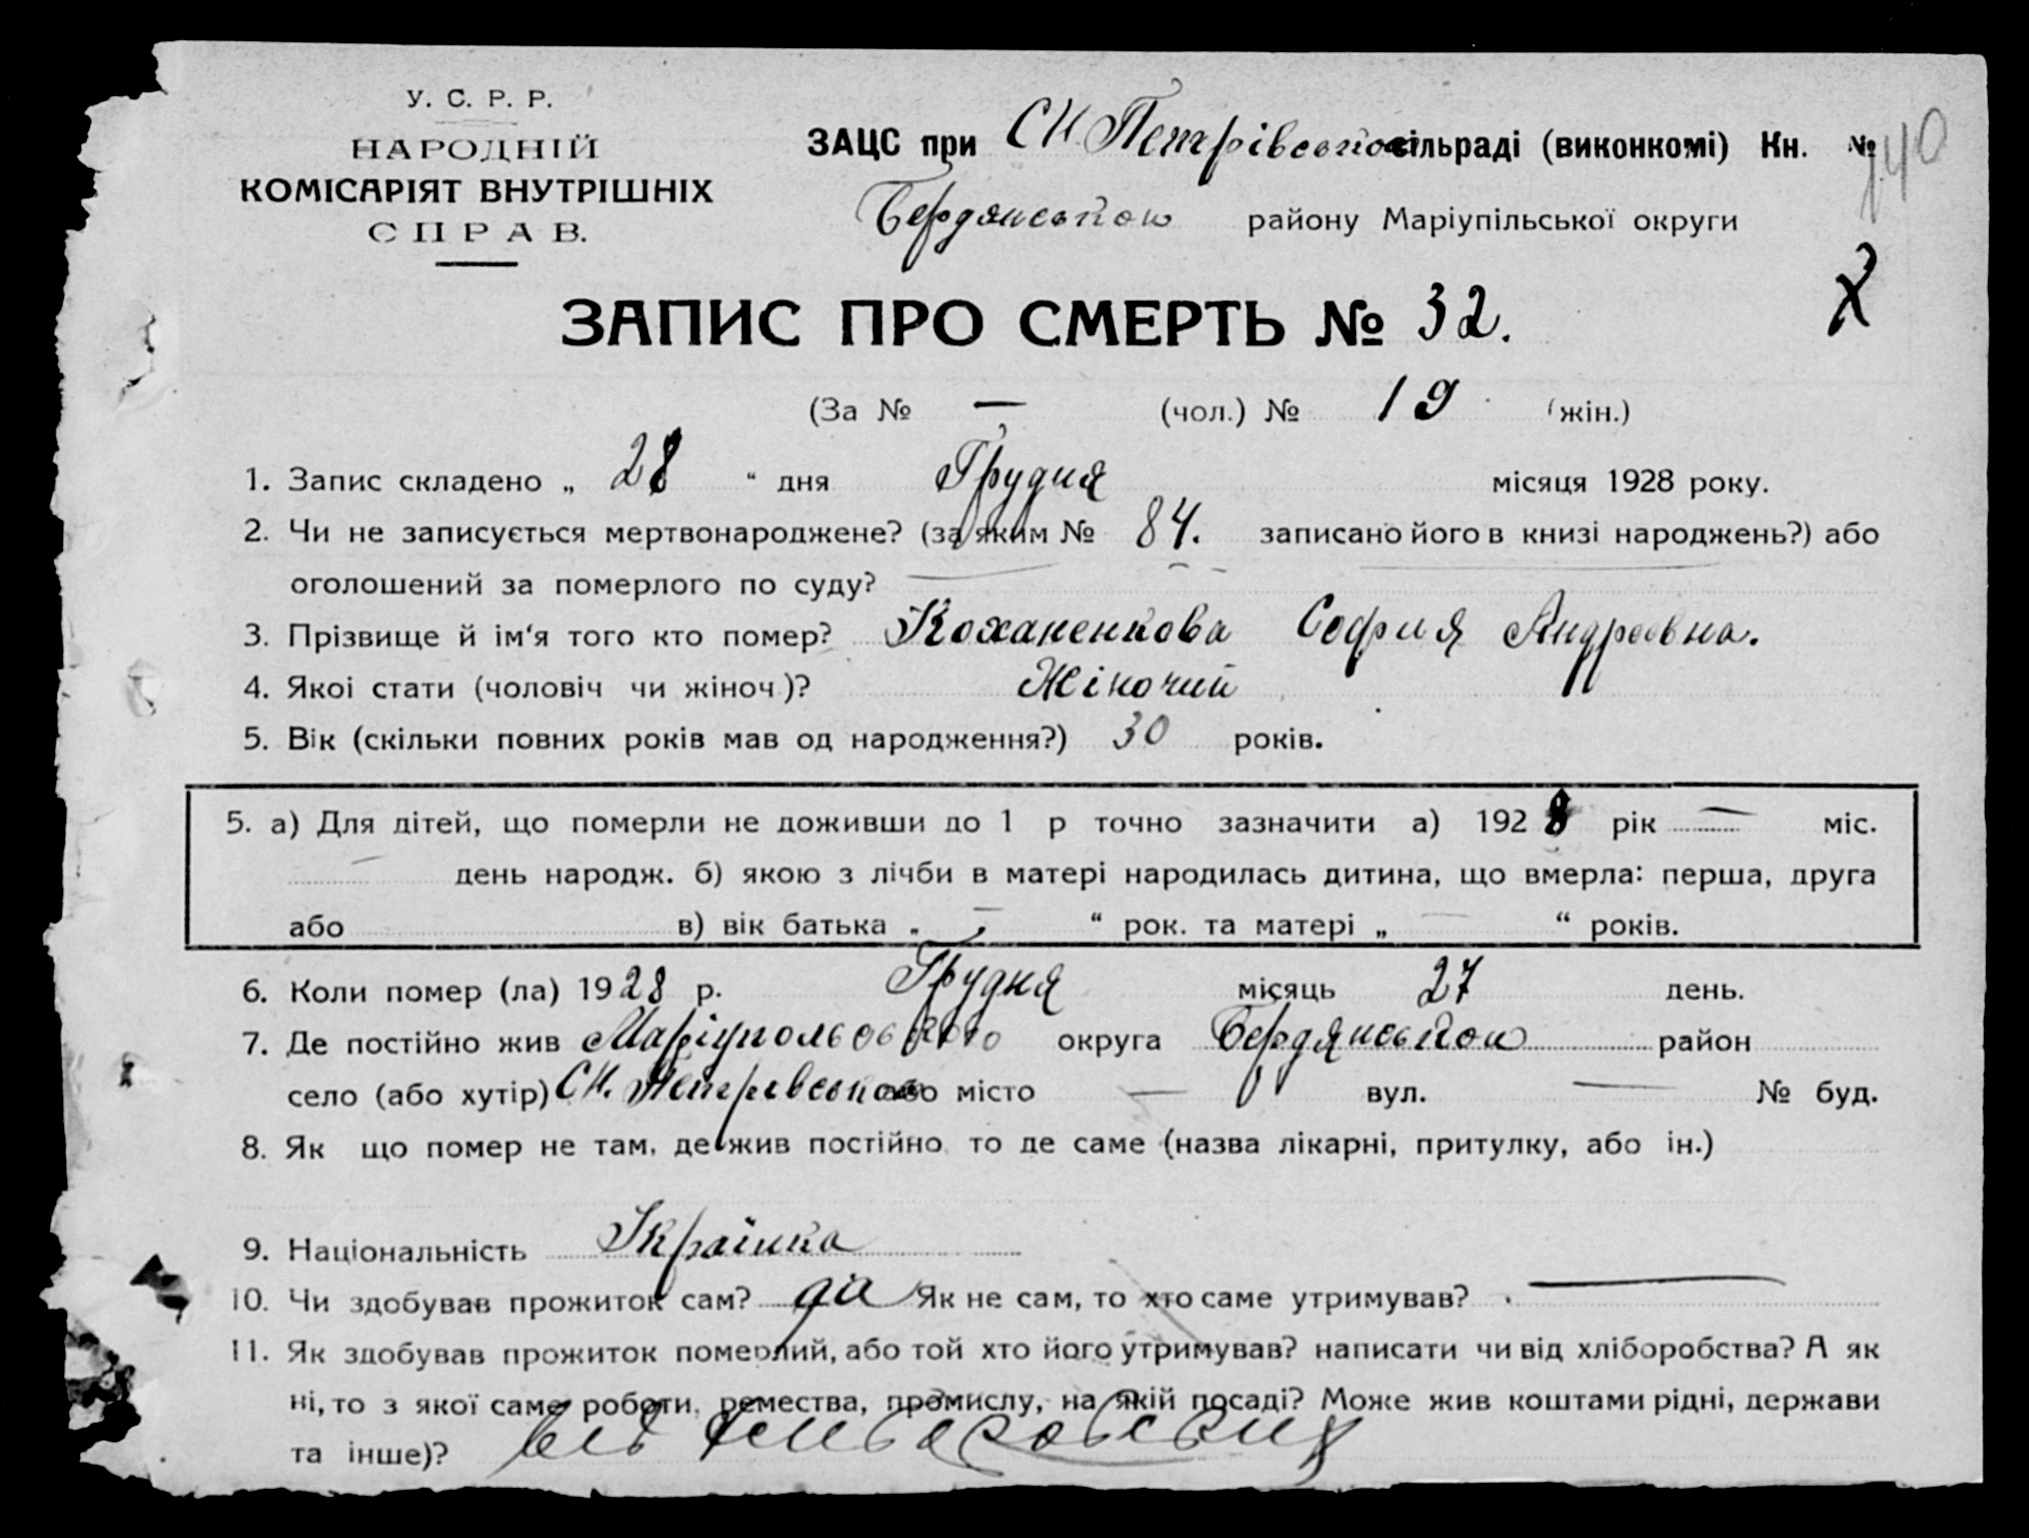 У. С. Р. Р.
НАРОДНІЙ
КОМІСАРІЯТ ВНУТРІШНІХ
СПРАВ.
ЗАЦС при СН Петрівською сільраді (виконкомі) Кн. №
140
Бердянською району Маріупільської округи
ЗАПИС ПРО СМЕРТЬ № 32.
(За № — (чол.) № 19 (жін.)
1. Запис складено „ 28 “ дня Грудня місяця 1928 року.
2. Чи не записується мертвонароджене? (за яким № 84. записано його в книзі народжень?) або
оголошений за померлого по суду?
3. Прізвище й ім‘я того кто помер? Коханенкова София Андреевна.
4. Якоі стати (чоловіч чи жіноч)? Жіночий
5. Вік (скільки повних років мав од народження?) 30 років.
5. а) Для дітей, що померли не доживши до 1 р точно зазначити а) 1928 рік — міс.
— день народж. б) якою з лічби в матері народилась дитина, що вмерла: перша, друга
або в) вік батька „ — “ рок. та матері „ — “ років.
6. Коли помер (ла) 1928 р. Грудня місяць 27 день.
7. Де постійно жив округа Бердянською район
село (або хутір) СН. Петрівською або місто — вул. — № буд.
8. Як що помер не там, де жив постійно то де саме (назва лікарні, притулку, або ін.)
9. Національність Українка
10. Чи здобував прожиток сам? да Як не сам, то хто саме утримував? —
11. Як здобував прожиток померлий, або той хто його утримував? написати чи від хліборобства? А як
ні, то з якої саме роботи, ремества, промислу, на якій посаді? Може жив коштами рідні, держави
та інше)? від